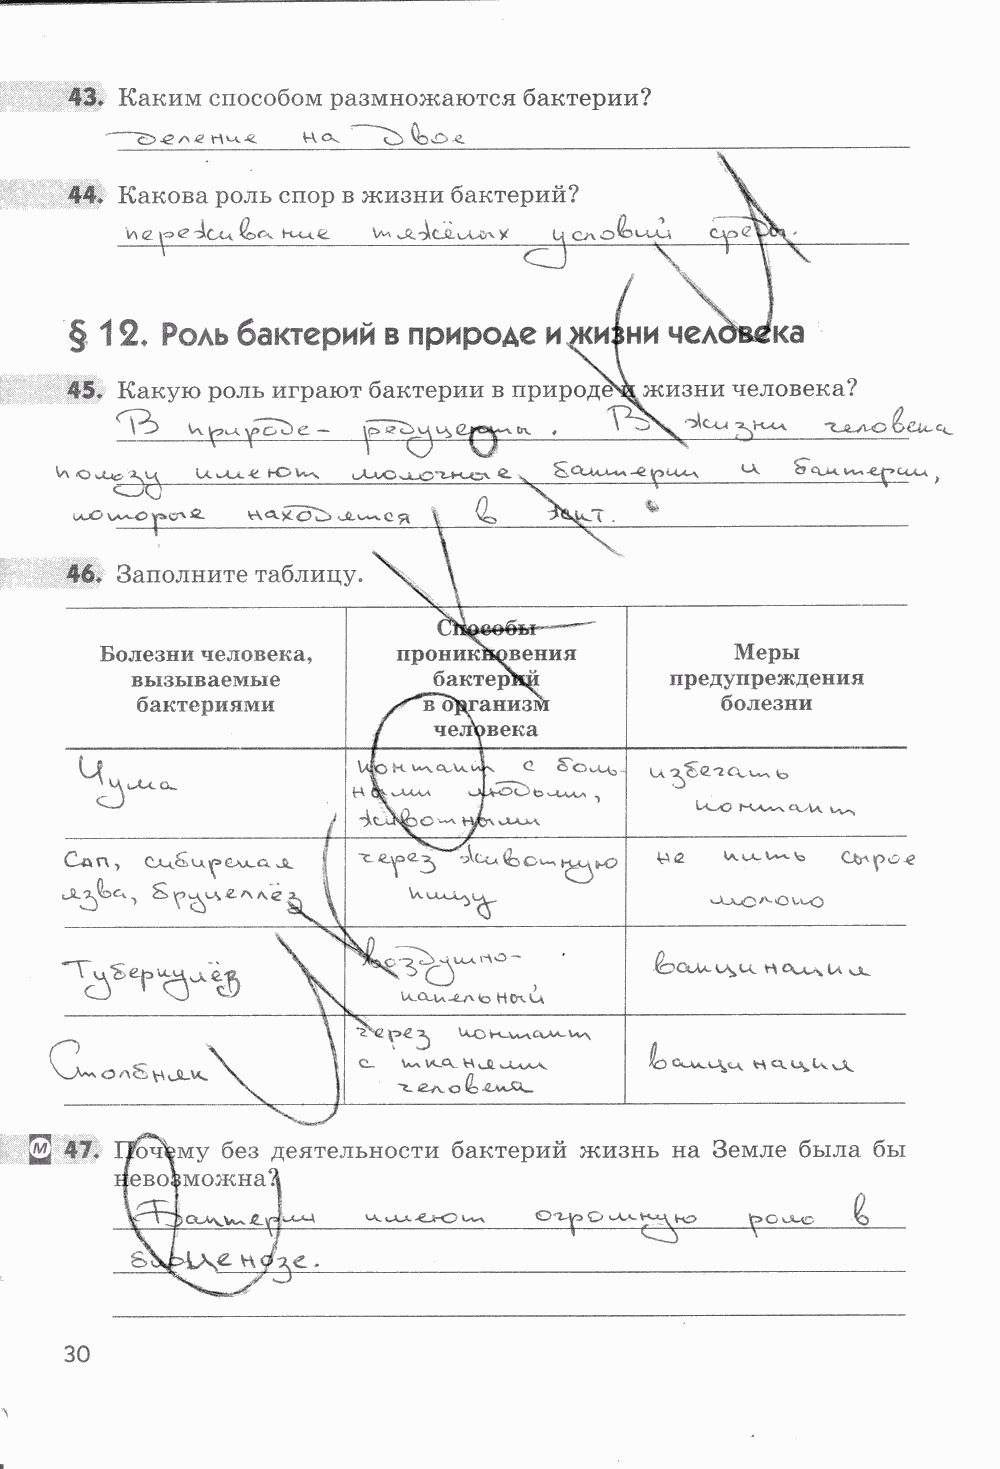 43. Каким способом размножаются бактерии?
деление на двое
44. Какова роль спор в жизни бактерий?
переживание тяжёлых условий среды.
§ 12. Роль бактерий в природе и жизни человека
45. Какую роль играют бактерии в природе и жизни человека?
В природе – редуценты. В жизни человека
пользу имеют молочные бактерии и бактерии,
которые находятся в кит.
46. Заполните таблицу.
Болезни человека,
вызываемые
бактериями
Способы
проникновения
бактерий
в организм
человека
Меры
предупреждения
болезни
Чума
контакт с боль-
ными людьми,
животными
избегать
контакт
Сап, сибирская
язва, бруцеллёз
через животную
пищу
не пить сырое
молоко
Туберкулёз
воздушно-
капельный
вакцинация
Столбняк
через контакт
с тканями
человека
вакцинация
М 47. Почему без деятельности бактерий жизнь на Земле была бы
невозможна?
Бактерии имеют огромную роль в
биоценозе.
30